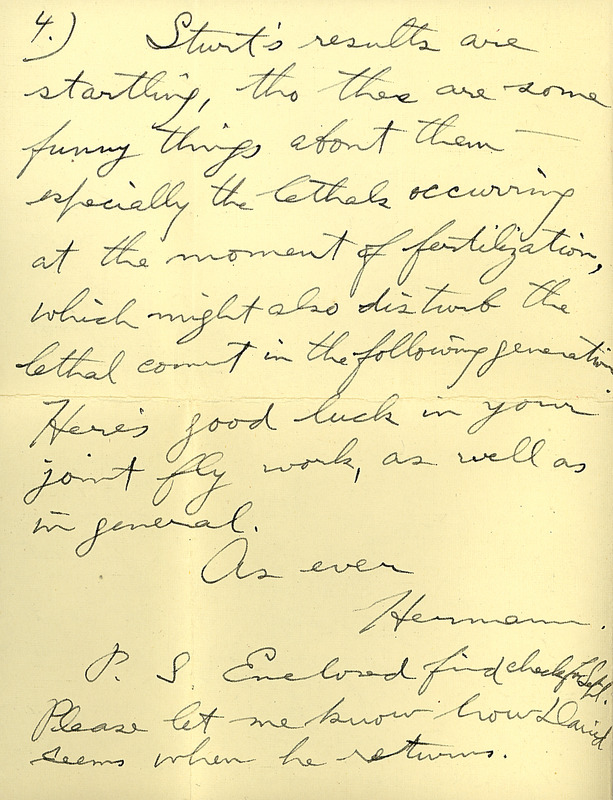 4.) Sturt's results are
startling, tho thee are some
funny things about them —
espcially the lethals occurring
at the moment of fertilization,
which might also disturb the
lethal count in the following generation.
Here's good luck in your
joint fly work, as well as
in general.
As ever
Hermann.
P. S. Enclosed find check for Sept.
Please let me know how David
seems when he returns.